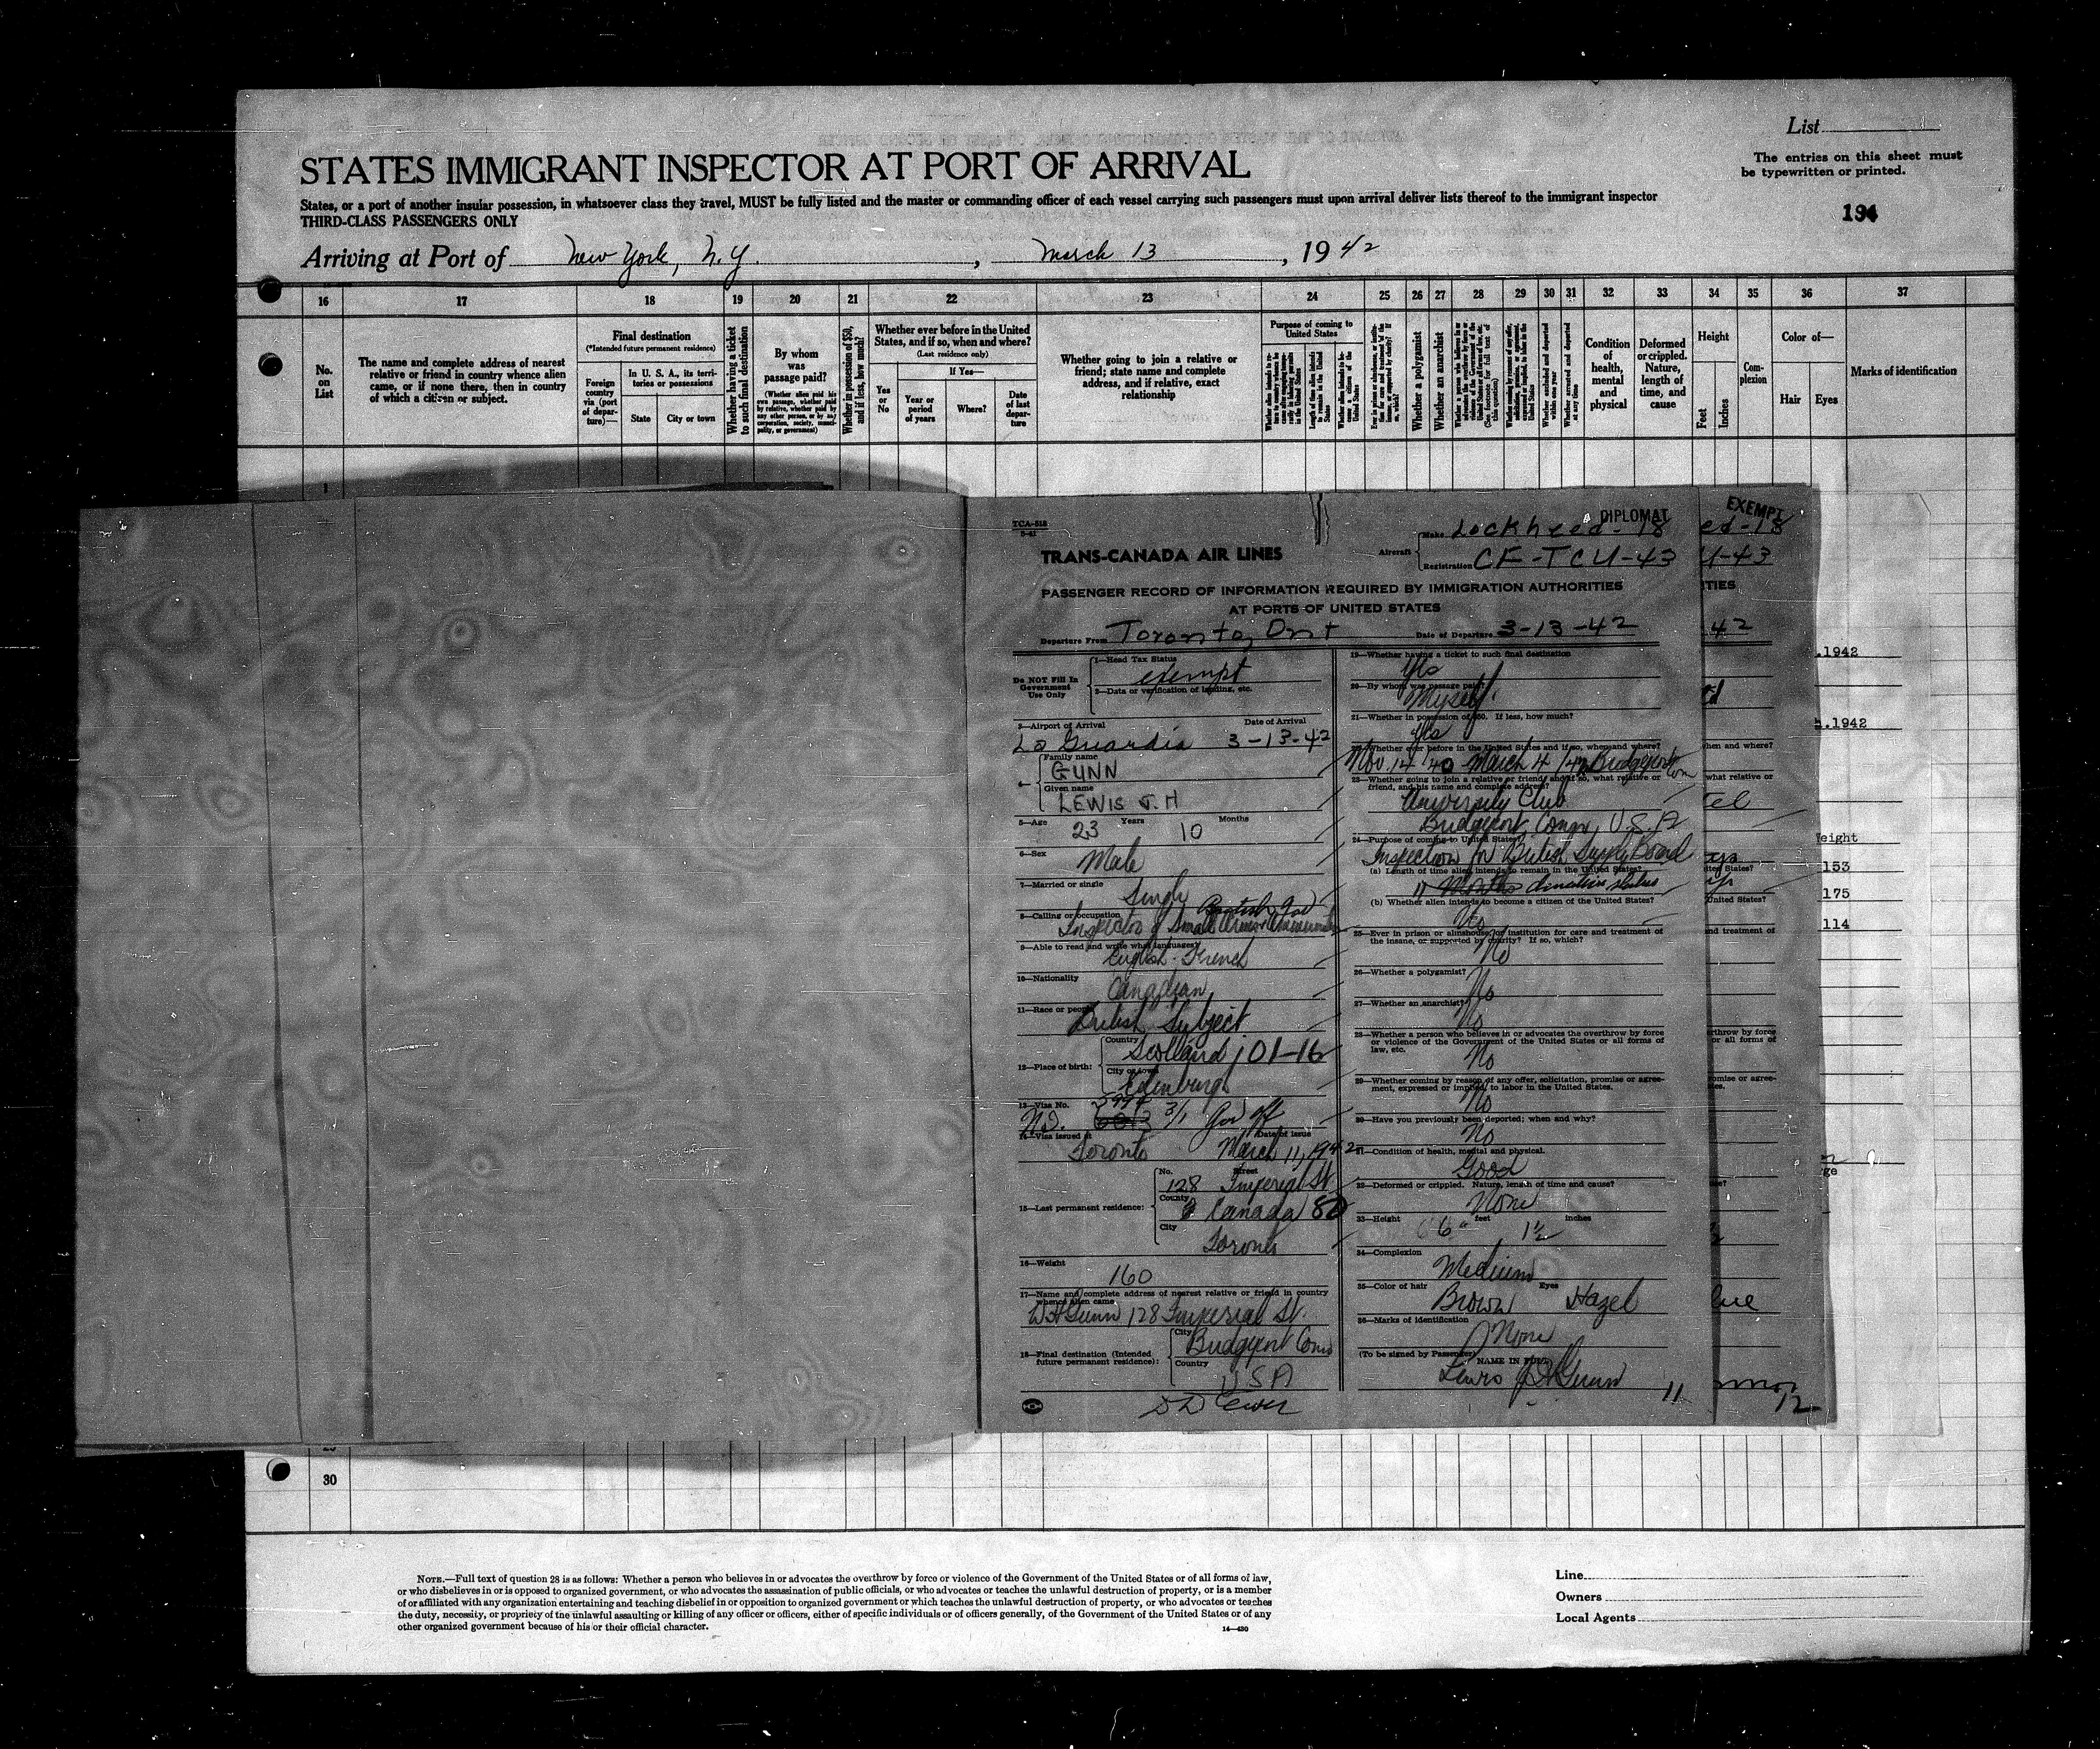 List
STATES IMMIGRANT INSPECTOR AT PORT OF ARRIVAL
The entries on this sheet must
be typewritten or printed.
States, or a port of another insular possession, in whatsoever class they travel, MUST be fully listed and the master or commanding officer of each vessel carrying such passengers must upon arrival deliver lists thereof to the immigrant inspector
THIRD-CLASS PASSENGERS ONLY
194
Arriving at Port of New York, N.Y., March 13, 1942
16 17 18 19 20 21 22 23 24 25 26 27 28 29 30 31 32 33 34 35 36 37
No. on List
The name and complete address of nearest
relative or friend in country whence alien
came, or if none there, then in country
of which a citizen or subject.
Final destination
(*Intended future permanent residence)
Foreign country via (port of departure)—
In U. S. A., its territories or possessions
State City or town
Whether having a ticket to such final destination
By whom was passage paid?
(Whether alien paid his own passage, whether paid by relative, whether paid by any other person, or by any corporation, society, municipality, or government)
Whether in possession of $50, and if less, how much?
Whether ever before in the United
States, and if so, when and where?
(Last residence only)
Yes or No
If Yes—
Year or period of years
Where?
Date of last departure
Whether going to join a relative or
friend; state name and complete
address, and if relative, exact
relationship
Purpose of coming to United States
Whether a polygamist
Whether an anarchist
Condition of health, mental and physical
Deformed or crippled. Nature, length of time, and cause
Height
Feet Inches
Complexion
Color of—
Hair Eyes
Marks of identification
DIPLOMAT
EXEMPT
TCA-518
5-41
TRANS-CANADA AIR LINES
Aircraft
Make Lockheed-18
Registration CF-TCU-43
PASSENGER RECORD OF INFORMATION REQUIRED BY IMMIGRATION AUTHORITIES
AT PORTS OF UNITED STATES
Departure From Toronto, Ont Date of Departure 3-13-42
Do NOT Fill In
Government
Use Only
1—Head Tax Status
exempt
2—Data or verification of landing, etc.
3—Airport of Arrival Date of Arrival
La Guardia 3-13-42
4— Family name
GUNN
Given name
LEWIS J.H
5—Age 23 Years 10 Months
6—Sex
Male
7—Married or single
Single
8—Calling or occupation
British Gov
Inspector of Small Arms Ammunition
9—Able to read and write what languages
English-French
10—Nationality
Canadian
11—Race or people
British Subject
12—Place of birth:
Country
Scotland 101-16
City or town
Edinburgh
13—Visa No.
5994
3/1 Gov off
14—Visa issued at Date of issue
Toronto March 11, 1942
15—Last permanent residence:
No. Street
128 Imperial St
County
Canada 80
City
Toronto
16—Weight
160
17—Name and complete address of nearest relative or friend in country
whence alien came
W H Gunn 128 Imperial St.
18—Final destination (Intended
future permanent residence):
City
Bridgeport Conn
Country
USA
19—Whether having a ticket to such final destination
Yes
20—By whom was passage paid?
Myself
21—Whether in possession of $50. If less, how much?
Yes
22—Whether ever before in the United States and if so, when and where?
Nov. 14 '40 March 4 /42 Bridgeport Conn
23—Whether going to join a relative or friend, and if so, what relative or
friend, and his name and complete address?
University Club
Bridgeport, Conn, U.S.A
24—Purpose of coming to United States?
Inspection for British Supply Board
(a) Length of time alien intends to remain in the United States?
(b) Whether alien intends to become a citizen of the United States?
25—Ever in prison or almshouse, or institution for care and treatment of
the insane, or supported by charity? If so, which?
No
26—Whether a polygamist?
No
27—Whether an anarchist?
No
28—Whether a person who believes in or advocates the overthrow by force
or violence of the Government of the United States or all forms of
law, etc.
No
29—Whether coming by reason of any offer, solicitation, promise or agree-
ment, expressed or implied, to labor in the United States.
No
30—Have you previously been deported; when and why?
No
31—Condition of health, mental and physical.
Good
32—Deformed or crippled. Nature, length of time and cause?
None
33—Height 6 feet 1½ inches
34—Complexion
Medium
35—Color of hair Eyes
Brown Hazel
36—Marks of identification
None
(To be signed by Passenger) NAME IN FULL
Lewis J H Gunn
11
12
.1942
.1942
eight
153
175
114
30
NOTE.—Full text of question 28 is as follows: Whether a person who believes in or advocates the overthrow by force or violence of the Government of the United States or of all forms of law,
or who disbelieves in or is opposed to organized government, or who advocates the assassination of public officials, or who advocates or teaches the unlawful destruction of property, or is a member
of or affiliated with any organization entertaining and teaching disbelief in or opposition to organized government or which teaches the unlawful destruction of property, or who advocates or teaches
the duty, necessity, or propriety of the unlawful assaulting or killing of any officer or officers, either of specific individuals or of officers generally, of the Government of the United States or of any
other organized government because of his or their official character.
14—430
Line
Owners
Local Agents